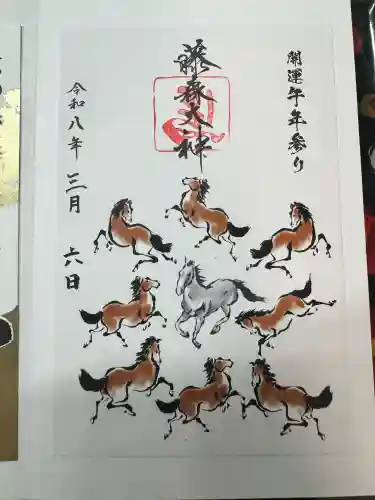 開運午年参り
藤森大神
令和八年三月六日